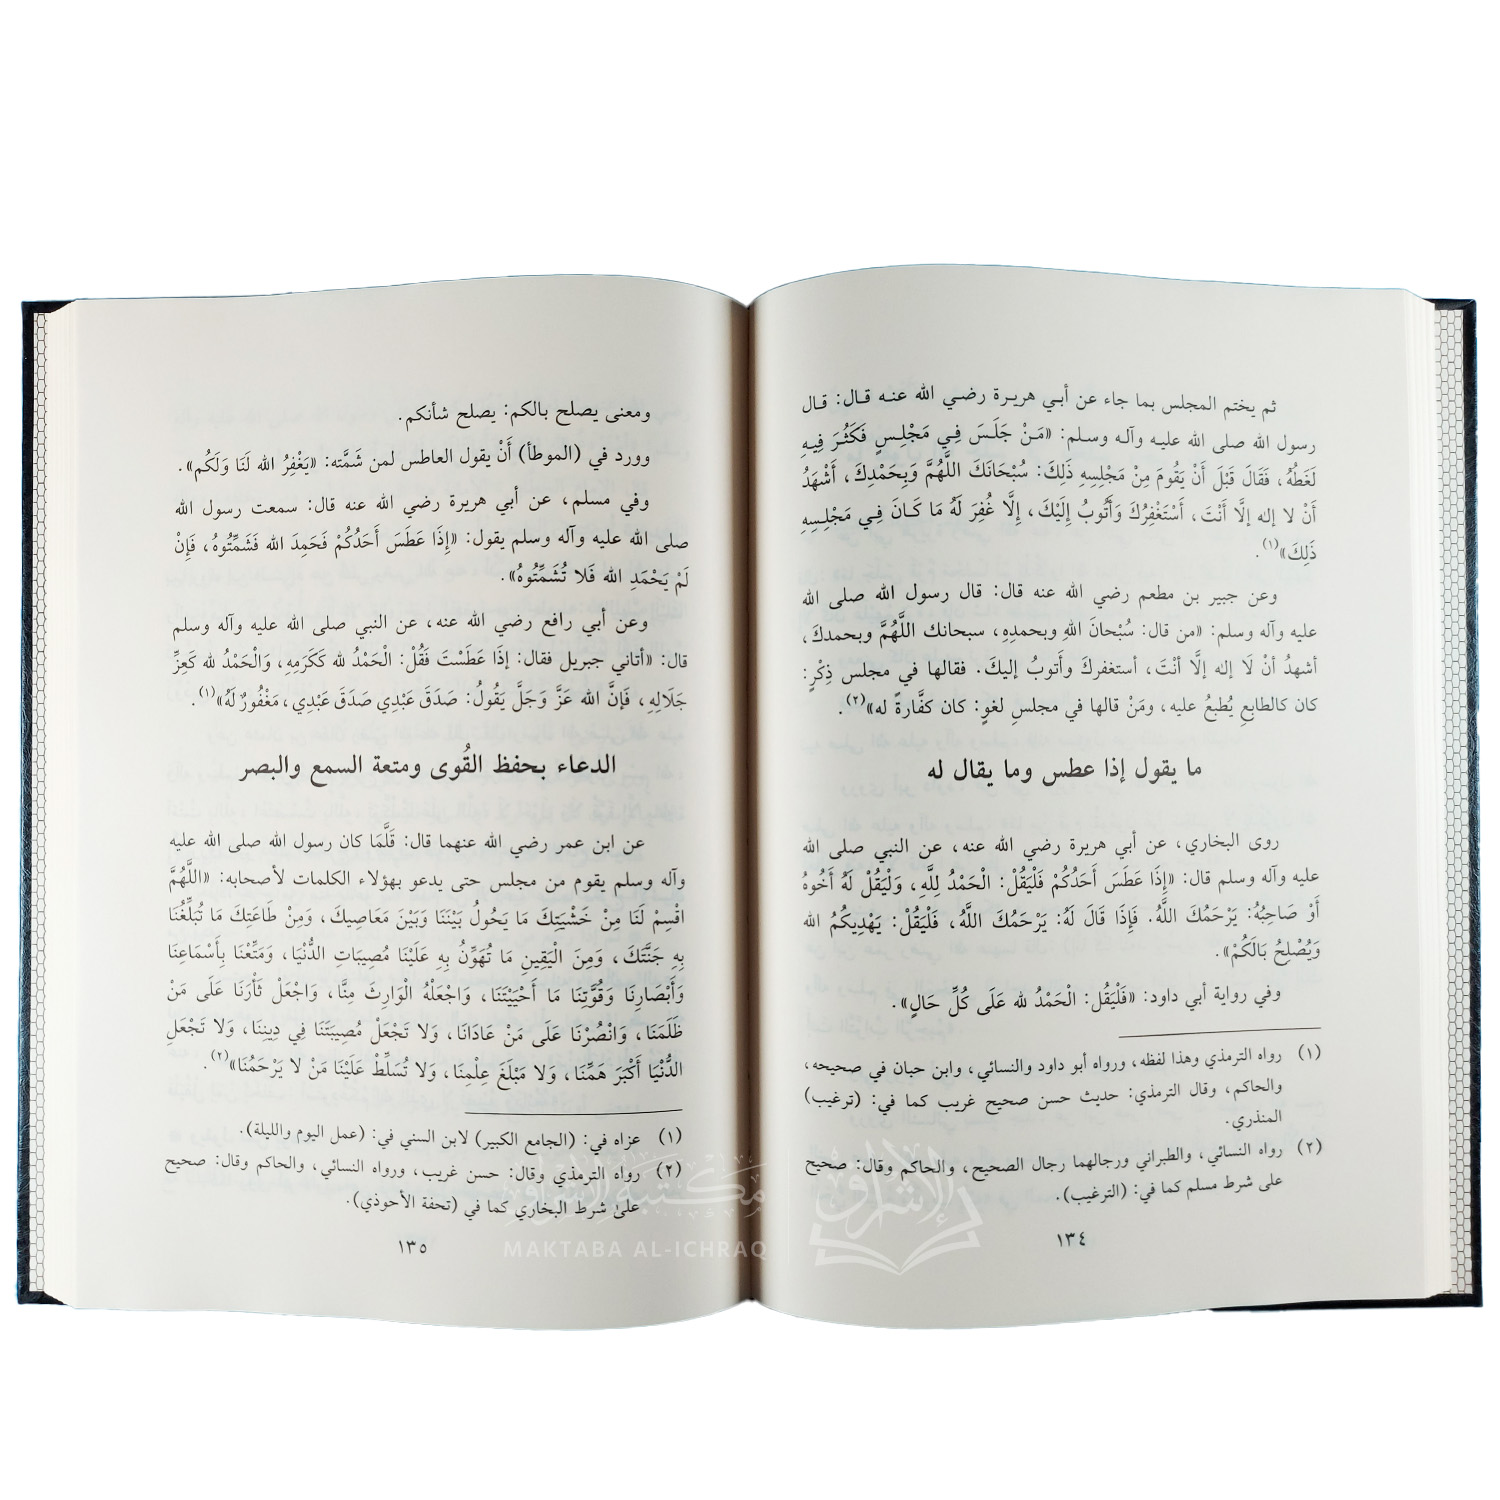 ثم يختم المجلس بما جاء عن أبي هريرة رضي الله عنه قال: قال
رسول الله صلى الله عليه وآله وسلم: «مَنْ جَلَسَ فِي مَجْلِسٍ فَكَثُرَ فِيهِ
لَغَطُهُ، فَقَالَ قَبْلَ أَنْ يَقُومَ مِنْ مَجْلِسِهِ ذَلِكَ: سُبْحَانَكَ اللَّهُمَّ وَبِحَمْدِكَ، أَشْهَدُ
أَنْ لا إله إلَّا أَنْتَ، أَسْتَغْفِرُكَ وَأَتُوبُ إِلَيْكَ، إِلَّا غُفِرَ لَهُ مَا كَانَ فِي مَجْلِسِهِ
ذَلِكَ»(١).
وعن جبير بن مطعم رضي الله عنه قال: قال رسول الله صلى الله
عليه وآله وسلم: «من قال: سُبْحَانَ اللهِ وبحمدِه، سبحانك اللَّهُمَّ وبحمدكَ،
أشهدُ أنْ لَا إله إلَّا أنْتَ، أستغفركَ وأَتوبُ إليكَ. فقالها في مجلس ذِكْرٍ:
كان كالطابعِ يُطبعُ عليه، ومَنْ قالها في مجلسِ لغوٍ: كان كفَّارةً له»(٢).
ما يقول إذا عطس وما يقال له
روى البخاري، عن أبي هريرة رضي الله عنه، عن النبي صلى الله
عليه وآله وسلم قال: «إِذَا عَطَسَ أَحَدُكُمْ فَلْيَقُلْ: الْحَمْدُ لِلَّهِ، وَلْيَقُلْ لَهُ أَخُوهُ
أَوْ صَاحِبُهُ: يَرْحَمُكَ اللَّهُ. فَإِذَا قَالَ لَهُ: يَرْحَمُكَ اللَّهُ، فَلْيَقُلْ: يَهْدِيكُمُ الله
وَيُصْلِحُ بَالَكُمْ».
وفي رواية أبي داود: «فَلْيَقُل: الْحَمْدُ لله عَلَى كُلِّ حَالٍ».
(١) رواه الترمذي وهذا لفظه، ورواه أبو داود والنسائي، وابن حبان في صحيحه،
والحاكم، وقال الترمذي: حديث حسن صحيح غريب كما في: (ترغيب)
المنذري.
(٢) رواه النسائي، والطبراني ورجالهما رجال الصحيح، والحاكم وقال: صحيح
على شرط مسلم كما في: (الترغيب).
١٣٤
ومعنى يصلح بالكم: يصلح شأنكم.
وورد في (الموطأ) أَنْ يقول العاطس لمن شَمَّته: «يَغْفِرُ الله لَنَا وَلَكُم».
وفي مسلم، عن أبي هريرة رضي الله عنه قال: سمعت رسول الله
صلى الله عليه وآله وسلم يقول: «إِذَا عَطَسَ أَحَدُكُمْ فَحَمِدَ الله فَشَمِّتُوهُ، فَإِنْ
لَمْ يَحْمَدِ الله فَلا تُشَمِّتُوهُ».
وعن أبي رافع رضي الله عنه، عن النبي صلى الله عليه وآله وسلم
قال: «أتاني جبريل فقال: إِذَا عَطَسْتَ فَقُلْ: الْحَمْدُ لله كَكَرَمِهِ، وَالْحَمْدُ لله كَعِزِّ
جَلَالِهِ، فَإِنَّ الله عَزَّ وَجَلَّ يَقُولُ: صَدَقَ عَبْدِي صَدَقَ عَبْدِي، مَغْفُورٌ لَهُ»(١).
الدعاء بحفظ القُوى ومتعة السمع والبصر
عن ابن عمر رضي الله عنهما قال: قَلَّمَا كان رسول الله صلى الله عليه
وآله وسلم يقوم من مجلس حتى يدعو بهؤلاء الكلمات لأصحابه: «اللَّهُمَّ
اقْسِمْ لَنَا مِنْ خَشْيَتِكَ مَا يَحُولُ بَيْنَنَا وَبَيْنَ مَعَاصِيكَ، وَمِنْ طَاعَتِكَ مَا تُبَلِّغُنَا
بِهِ جَنَّتَكَ، وَمِنَ الْيَقِينِ مَا تُهَوِّنُ بِهِ عَلَيْنَا مُصِيبَاتِ الدُّنْيَا، وَمَتِّعْنَا بِأَسْمَاعِنَا
وَأَبْصَارِنَا وَقُوَّتِنَا مَا أَحْيَيْتَنَا، وَاجْعَلْهُ الْوَارِثَ مِنَّا، وَاجْعَلْ ثَأْرَنَا عَلَى مَنْ
ظَلَمَنَا، وَانْصُرْنَا عَلَى مَنْ عَادَانَا، وَلا تَجْعَلْ مُصِيبَتَنَا فِي دِينِنَا، وَلا تَجْعَلِ
الدُّنْيَا أَكْبَرَ هَمِّنَا، وَلا مَبْلَغَ عِلْمِنَا، وَلا تُسَلِّطْ عَلَيْنَا مَنْ لا يَرْحَمُنَا»(٢).
(١) عزاه في: (الجامع الكبير) لابن السني في: (عمل اليوم والليلة).
(٢) رواه الترمذي وقال: حسن غريب، ورواه النسائي، والحاكم وقال: صحيح
على شرط البخاري كما في (تحفة الأحوذي).
١٣٥
مكتبة الإشراق
الإشراق
MAKTABA AL-ICHRAQ